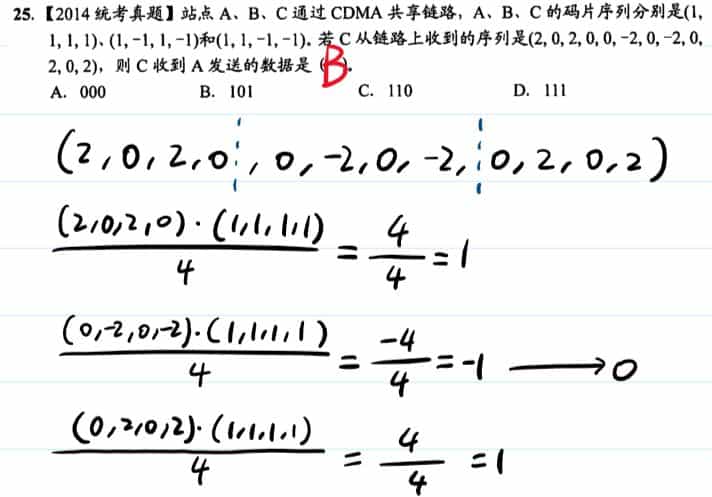 25.【2014 统考真题】站点 A、B、C 通过 CDMA 共享链路，A、B、C 的码片序列分别是(1,
1, 1, 1)、(1, -1, 1, -1)和(1, 1, -1, -1). 若 C 从链路上收到的序列是(2, 0, 2, 0, 0, -2, 0, -2, 0,
2, 0, 2)，则 C 收到 A 发送的数据是 ( B ).
A. 000 B. 101 C. 110 D. 111
(2,0,2,0, 0,-2,0,-2, 0,2,0,2)
(2,0,2,0)·(1,1,1,1) / 4 = 4/4 = 1
(0,-2,0,-2)·(1,1,1,1) / 4 = -4/4 = -1 ⟶ 0
(0,2,0,2)·(1,1,1,1) / 4 = 4/4 = 1